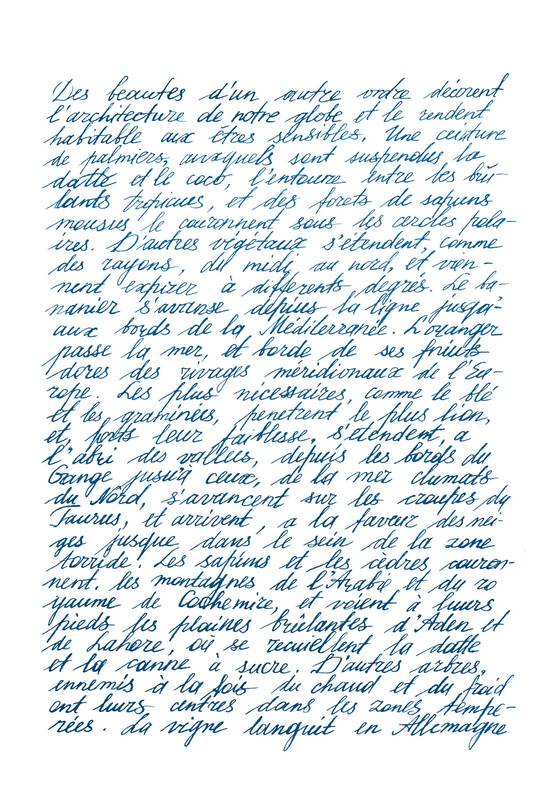 Des beautes d'un autre ordre décorent
l'architecture de notre globe et le rendent
habitable aux êtres sensibles. Une ceinture
de palmiers, auxquels sont suspendus la
datte et le coco, l'entoure entre les brû-
lants tropicues, et des forets de sapins
mousus le couronnent sous les cercles pola-
ires. D'autres végétaux s'étendent, comme
des rayons, du midi au nord, et vien-
nent expirer à differents degrés. Le ba-
nanier s'avanse depius la ligne jusqu'
aux bords de la Méditerranée. L'oranger
passe la mer, et borde de ses fruits
dores des rivages méridionaux de l'Eu-
rope. Les plus nécessaires, comme le blé
et les graminées, penetrent le plus lion,
et, forts leur faiblesse, s'etendent, a
l'abri des vallées, depuis les bords du
Gange jusqu'à ceux, de la mer
du Nord, s'avancent sur les croupes du
Taurus, et arrivent, a la faveur des nei-
ges jusque dans le sein de la zone
torride. Les sapins et les cèdres couron-
nent, les montagnes de l'Arabie et du ro
yaume de Cachemire, et voient à leurs
pieds les plaines brûlantes d'Aden et
de Lahore, où se recueillent la datte
et la canne à sucre. D'autres arbres,
ennemis à la fois du chaud et du froid
ont leurs centres dans les zones tempe-
rées. La vigne languit en Allemagne